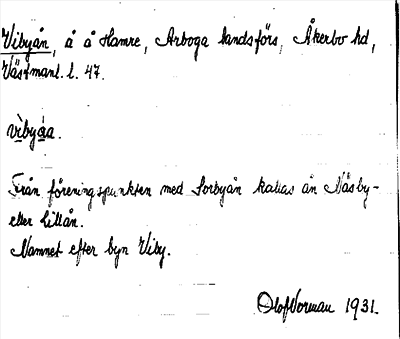 Vibyån, å å Hamre, Arboga landsförs, Åkerbo hd,
Västmanl. l. 47.
vibyåa.
Från föreningspunkten med Sorbyån kallas ån Näsby-
eller Lillån.
Namnet efter byn Viby.
Olof Norman 1931.